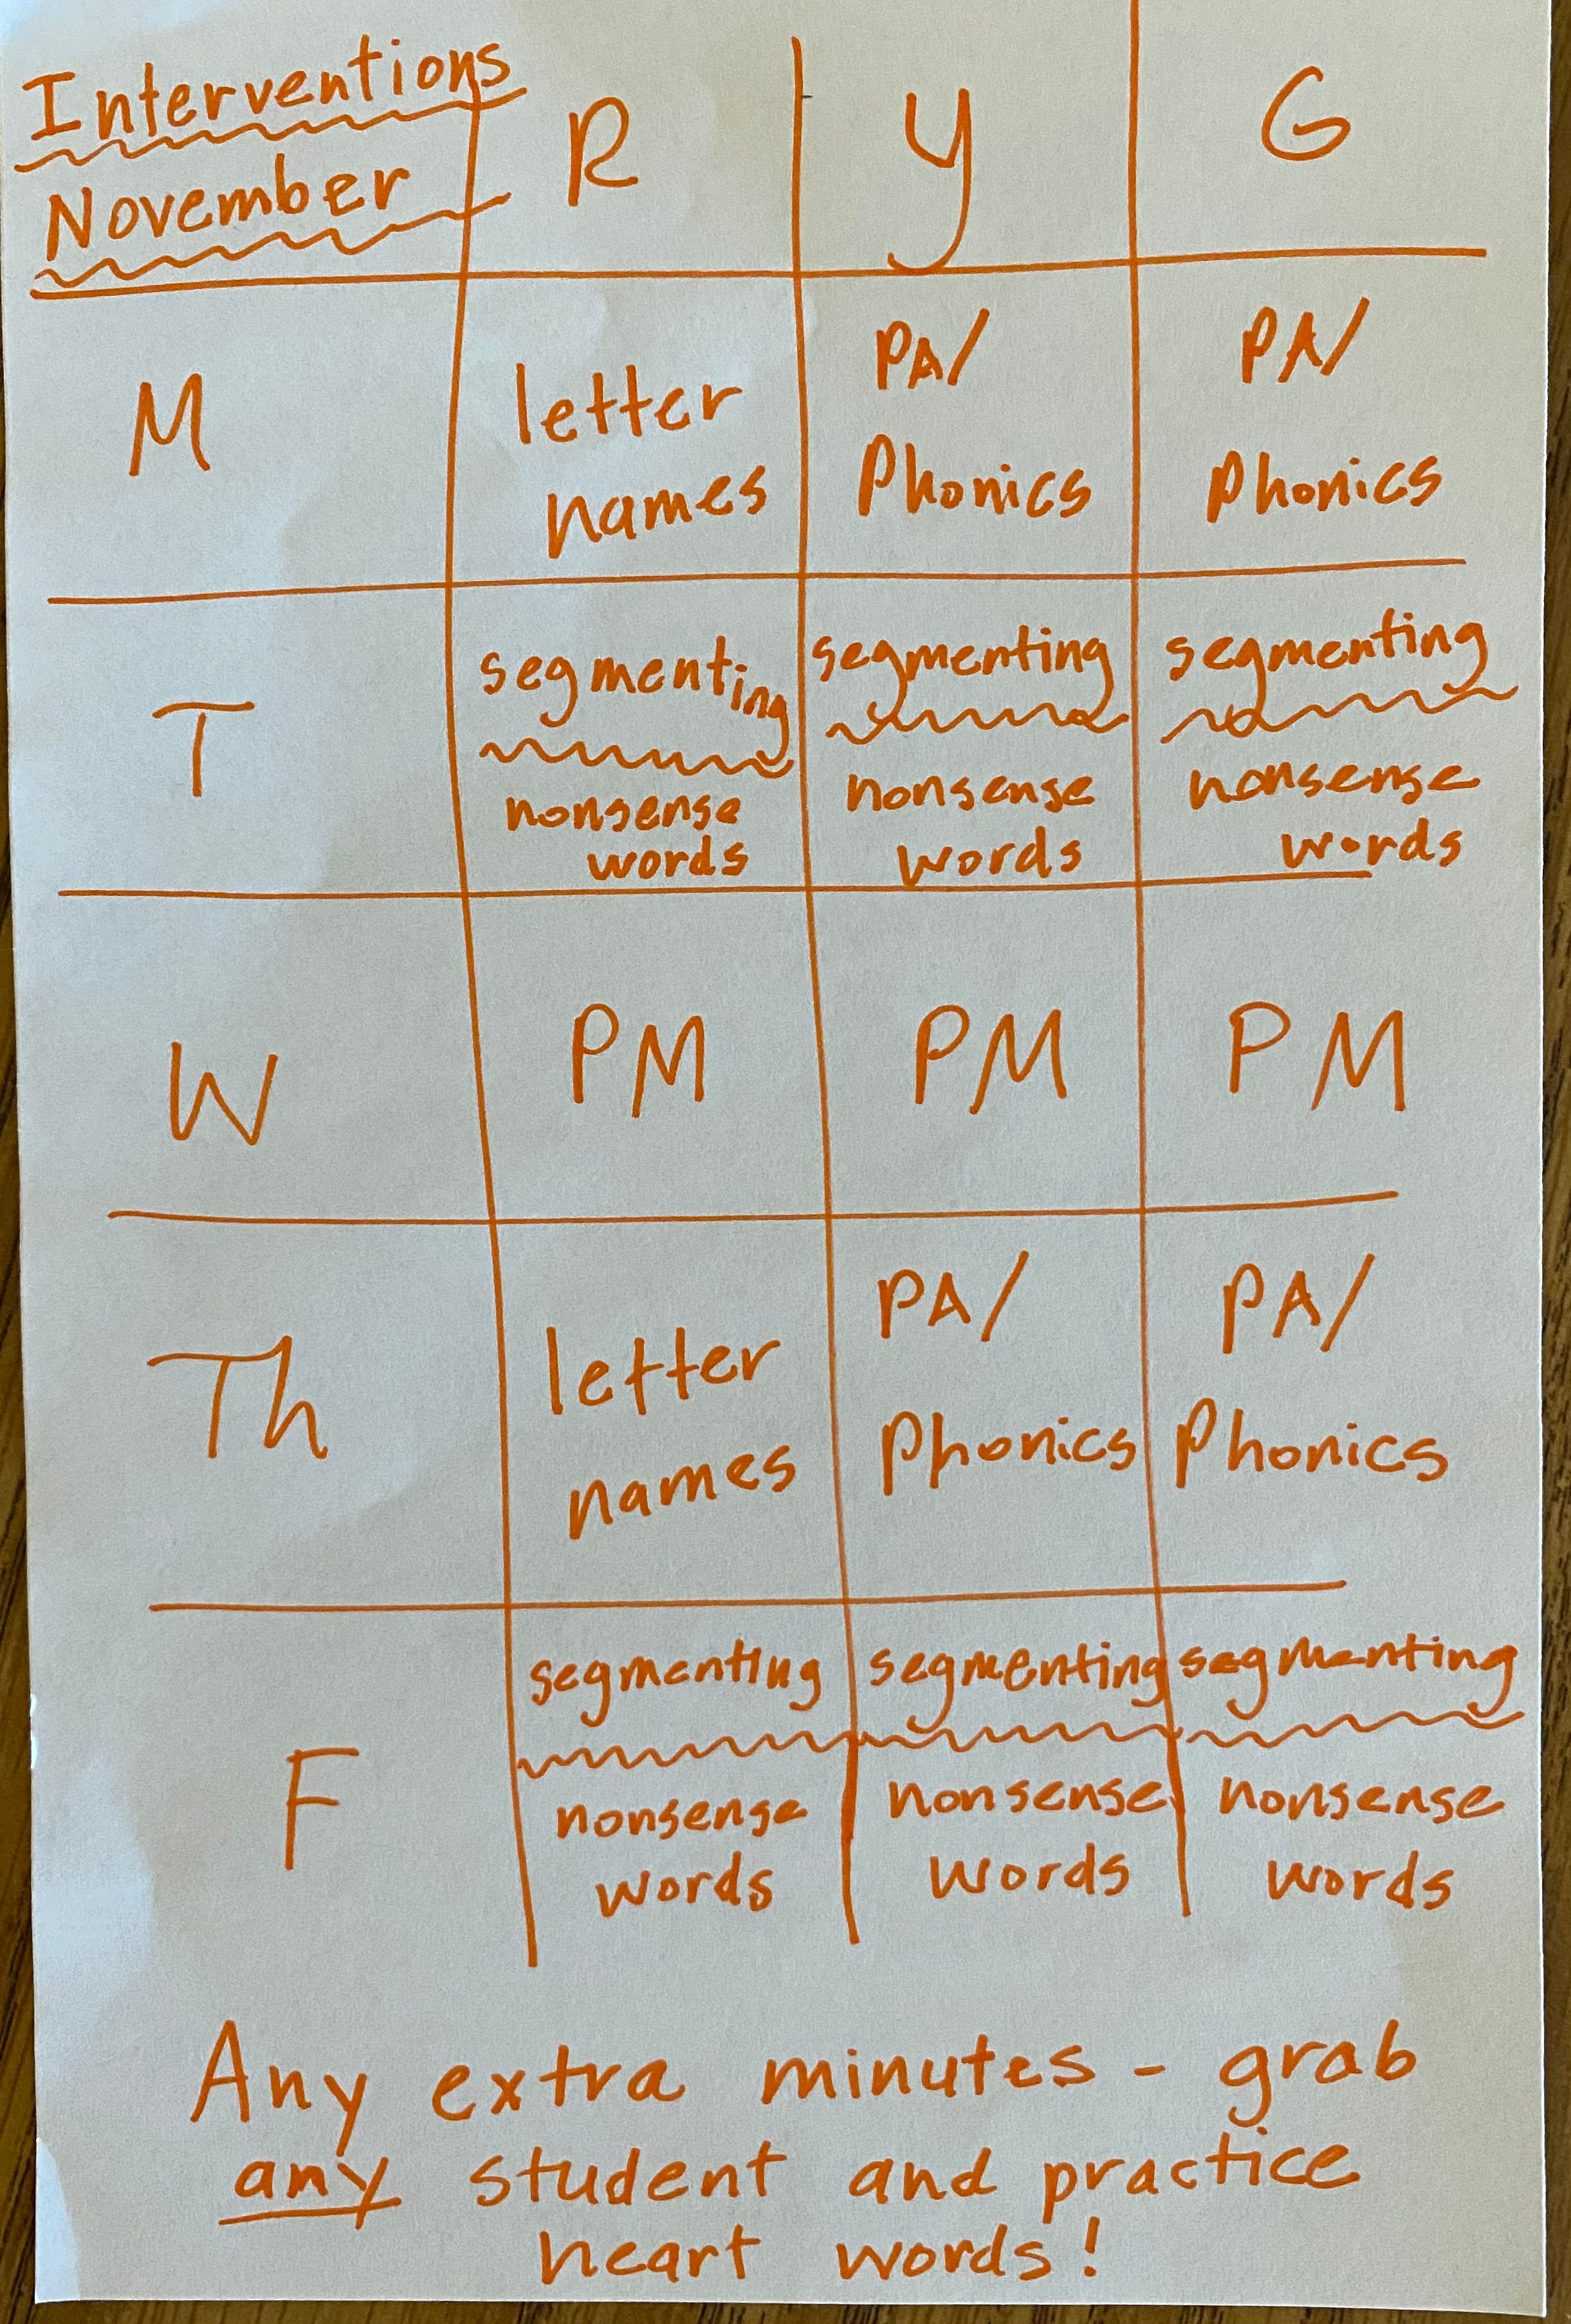 Interventions
November
R y G
M
letter
names
PA/
Phonics
PA/
Phonics
T
segmenting
nonsense
words
segmenting
nonsense
words
segmenting
nonsense
words
W
PM
PM
PM
Th
letter
names
PA/
Phonics
PA/
Phonics
F
segmenting
nonsense
words
segmenting
nonsense
words
segmenting
nonsense
words
Any extra minutes - grab
any student and practice
heart words!